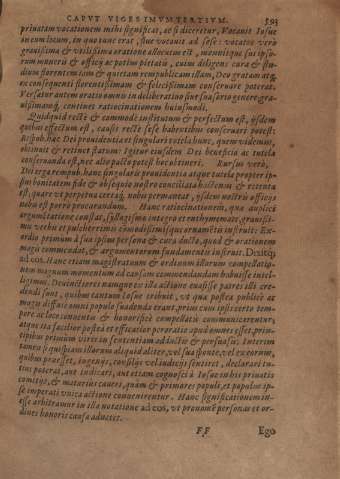 CAPVT VIGESIMVMTERTIVM. 593
priuatam vocationem mihi significat, ac si diceretur, Vocauit Iosue
in eum locum, in quo tunc erat, siue vocauit ad sese: vocatos verò
grauissima & vtilissima oratione allocutus est, monuitque sui ipso-
rum muneris & officij ac potius pietatis, cuius deligens cura & stu-
dium florentem iam & quietam rempublicam illam, Deo gratam atque
ex consequenti florentissimam & felicissimam conseruare poterat.
Versatur autem oratio omnis in deliberatiuo siue suasorio genere gra-
uissimoque, continet ratiocinationem huiusmodi.
Quidquid rectè & commodè institutum & perfectum est, ijsdem
quibus effectum est, causis rectè sese habentibus conseruari potest:
Respub. hæc Dei prouidentia et singulari tutela hunc, quem videmus,
obtinuit & retinet statum: Igitur eiusdem Dei beneficio ac tutela
conseruanda est, nec alio pacto potest hoc obtineri. Rursus verò,
Dei erga rempub. hanc singularis prouidentia atque tutela propter ip-
sius bonitatem fide & obsequio nostro conciliata hactenus & retenta
est, quare vt perpetua certaque nobis permaneat, ijsdem nostris officijs
nobis est porrò procurandum. Hanc ratiocinationem, quæ duplici
argumentatione constat, syllogismo integro et enthymemate, grauissi-
mis verbis et pulcherrimis commodissimisque ornamentis instruit: Ex-
ordio primùm à sua ipsius persona & cura ducto, quod & orationem
magis commendat, & argumentorum fundamentis inseruit. Dixitque
ad eos. Hanc etiam magistratuum & ordinum illorum compellatio-
nem magnum momentum ad causam commendandam habuisse intel-
ligimus. Deuinctiores nanque ex illa actione euasisse patres illi cre-
dendi sunt, quibus tantum Iosue tribuit, vt quæ postea publicè ac
magis diffuse omni populo suadenda erant, prius cum ipsis certo tem-
pore ac loco conuentis & honorificè compellatis communicarentur,
atque ita facilior postea et efficacior peroratio apud omnes esset, prin-
cipibus primùm viris in sententiam adductis & persuasis. Interim
honos is quispiam illorum aliquid aliter, vel sua sponte, vel ex eorum,
quibus præesset, ingenijs, consilijs vel iudicijs sentiret, declarari tu-
tius poterat, aut indicari, aut etiam cognosci à Iosue in his priuatis
comitijs, & maturius caueri, quàm & primores populi, et populus ip-
se imperati vnica actione conuenirentur. Hanc significationem in-
esse arbitramur in illa notatione ad eos, vt pronomen personas et or-
dines honoris causa aductet.
FF Ego